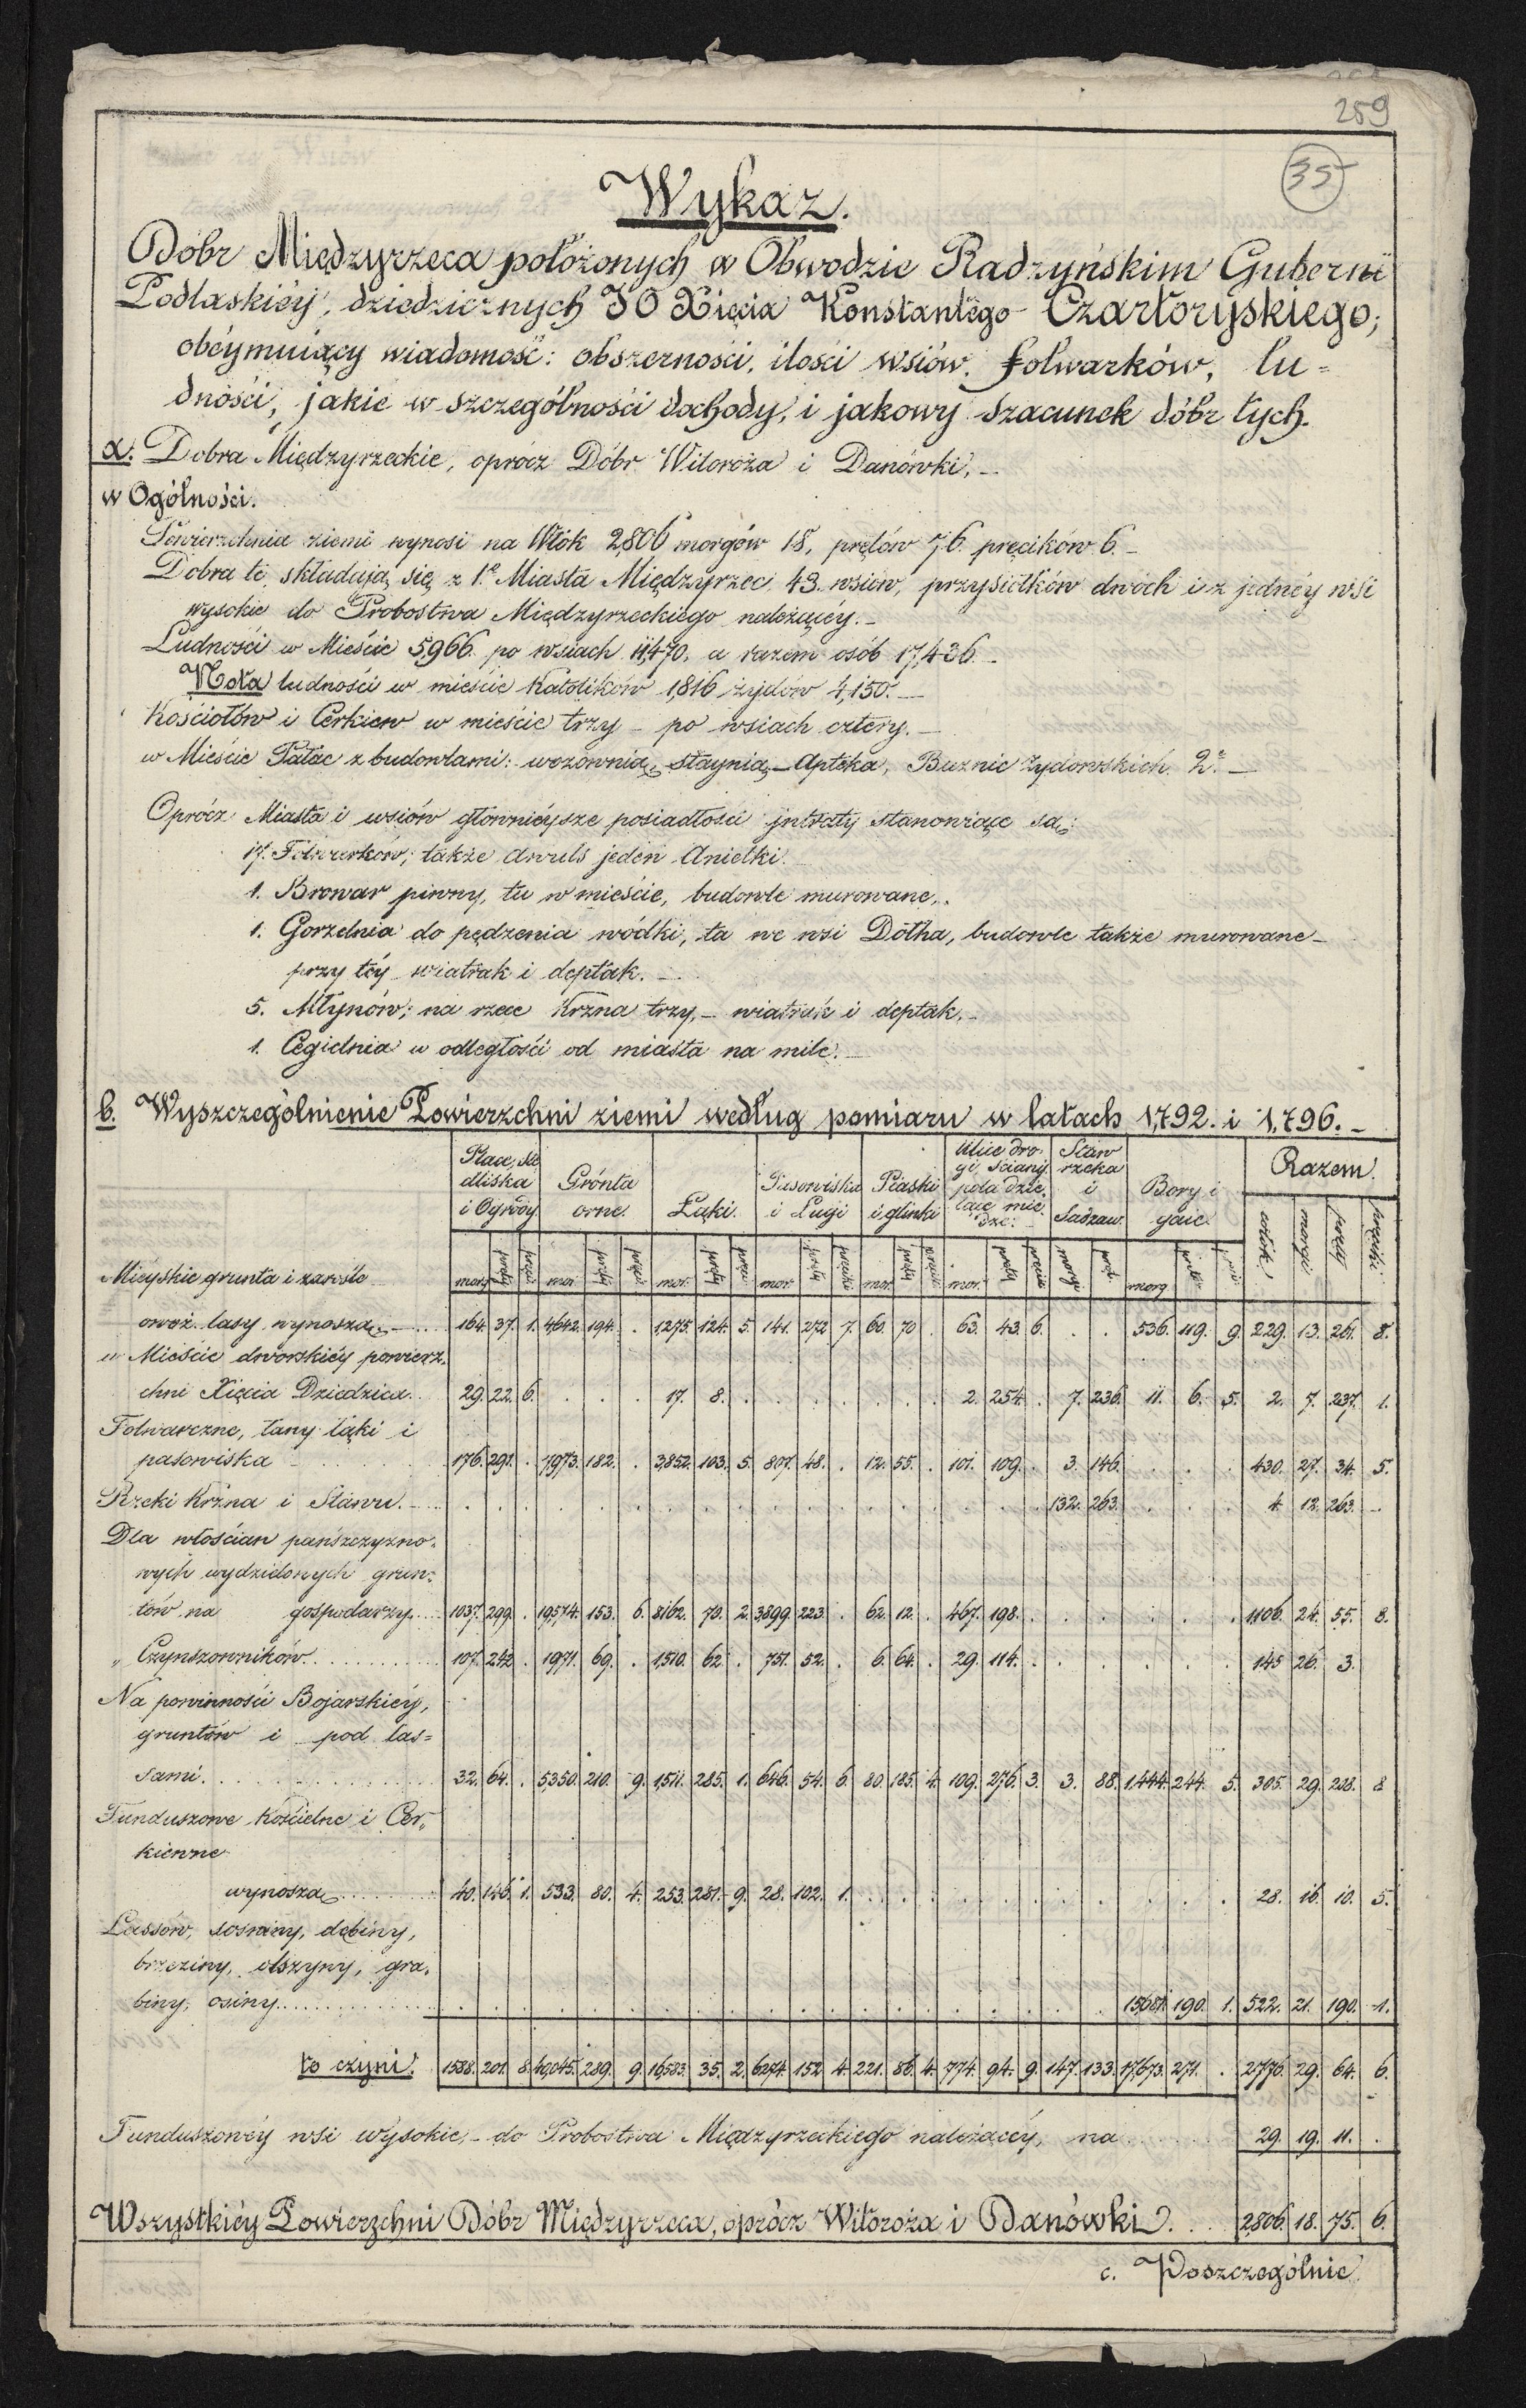 259
35
Wykaz.
Dóbr Międzyrzeca położonych w Obwodzie Radzyńskim Gubernii
Podlaskiéy, dziedzicznych JO Xięcia Konstantego Czartoryskiego;
obéymuiący wiadomość: obszerności, ilości wsiów, folwarków, lu=
dności, jakie w szczególności dochody, i jakowy szacunek dóbr tych.
a. Dobra Międzyrzeckie, oprócz Dóbr Witoroża i Danówki,
w Ogólności.
Powierzchnia ziemi wynosi na Włók 2,806 morgów 18, prętów 76. pręcików 6.
Dobra te składają się z 1o Miasta Międzyrzec, 43. wsiów, przysiołków dwóch i z jednéy wsi
wysokie do Probostwa Międzyrzeckiego należącéy.
Ludności w Mieście 5,966 po wsiach 11,470, a razem osób 17,436.
Nota ludności w mieście Katolików 1,816 żydów 4,150.
Kościołów i Cerkiew w mieście trzy – po wsiach cztery.
w Mieście Pałac z budowlami: wozownią, staynią, – Apteka, Buznic żydowskich 2e.
Oprócz Miasta i wsiów główniéysze posiadłości jntraty stanowiące są:
17. Folwarków; także jeden Anielki.
1. Browar piwny, tu w mieście, budowle murowane,
1. Gorzelnia do pędzenia wódki, ta we wsi Dołha, budowle także murowane –
przy téy wiatrak i deptak.
5. Młynów; na rzece Krzna trzy, – wiatrak i deptak.
1. Cegielnia w odległości od miasta na milę.
b. Wyszczególnienie Powierzchni ziemi według pomiaru w latach 1,792. i 1,796.
Place, sie dliska i Ogrody | Grónta orne. | Łąki. | Pasowiska i Ługi | Piaski i glinki | Ulice dro gi, ściany pola dzie, lące mie dze. | Staw rzeka i Sadzaw. | Bory i gaie. | Razem.
morg pręty pręci | mor. pręty pręci | mor. pręty pręci | mor. pręty pręcik | mor. pręty | mor. pręty pręcik | morgi pręt. | morg | włók morgi pręty pręciki
Mieyskie grunta i zarośle
oraz lasy wynoszą. 164. 37. 1. 4,642. 194. . 1,275. 124. 5. 141. 272. 7. 60. 70. . 63. 43. 6. . . 536. 119. 9. 229. 13. 261. 8.
w Mieście dworskiéy powierz=
chni Xięcia Dziedzica. 29. 22. 6. . . . 17. 8. . . . . . . . 2. 254. . 7. 236. 11. 6. 5. 2. 7. 237. 1.
Folwarczne, łany łąki i
pasowiska 176. 291. . 7,973. 182. . 3,852. 103. 5. 807. 48. . 12. 55. . 101. 109. . 3. 146. . . . 430. 27. 34. 5.
Rzeki Krzna i Stawu. 132. 263. . . . 4. 12. 263.
Dla włościan pańszczyzno=
wych wydzielonych grun=
tów na gospodarzy. 1037. 299. . 19,574. 153. 6. 8162. 70. 2. 3,899. 223. . 62. 12. . 467. 198. . . . . . . 1106. 24. 55. 8.
" Czynszowników. 107. 242. . 1971. 69. . 1,510. 62. . 751. 52. . 6. 64. . 29. 114. . . . . . . 145 26. 3.
Na powinności Bojarskiéy,
gruntów i pod las=
sami. 32. 64. . 5350. 210. 9. 1,511. 285. 1. 646. 54. 6. 80. 185. 4. 109. 276. 3. 3. 88. 1,444. 244. 5. 305. 29. 208. 8
Funduszowe Kościelne i Cer=
kiewne
wynoszą 40. 146. 1. 533. 80. 4. 253. 281. 9. 28. 102. 1. . . . . . . . . . . . 28. 16. 10. 5.
Lassów, sosniny, dębiny,
brzeziny, olszyny, gra=
biny, osiny. 15,681. 190. 1. 522. 21. 190. 1.
to czyni. 1588. 201. 8. 40,045. 289. 9. 16,583. 35. 2. 6274. 152. 4. 221. 86. 4. 774. 94. 9. 147. 133. 17,673. 271. . 2,776. 29. 64. 6.
Funduszowéy wsi Wysokie, – do Probostwa Międzyrzeckiego należącéy, na 29. 19. 11. .
Wszystkiéy Powierzchni Dóbr Międzyrzeca, oprócz Witoroża i Danówki. 2,806. 18. 75. 6.
c. Poszczególnie